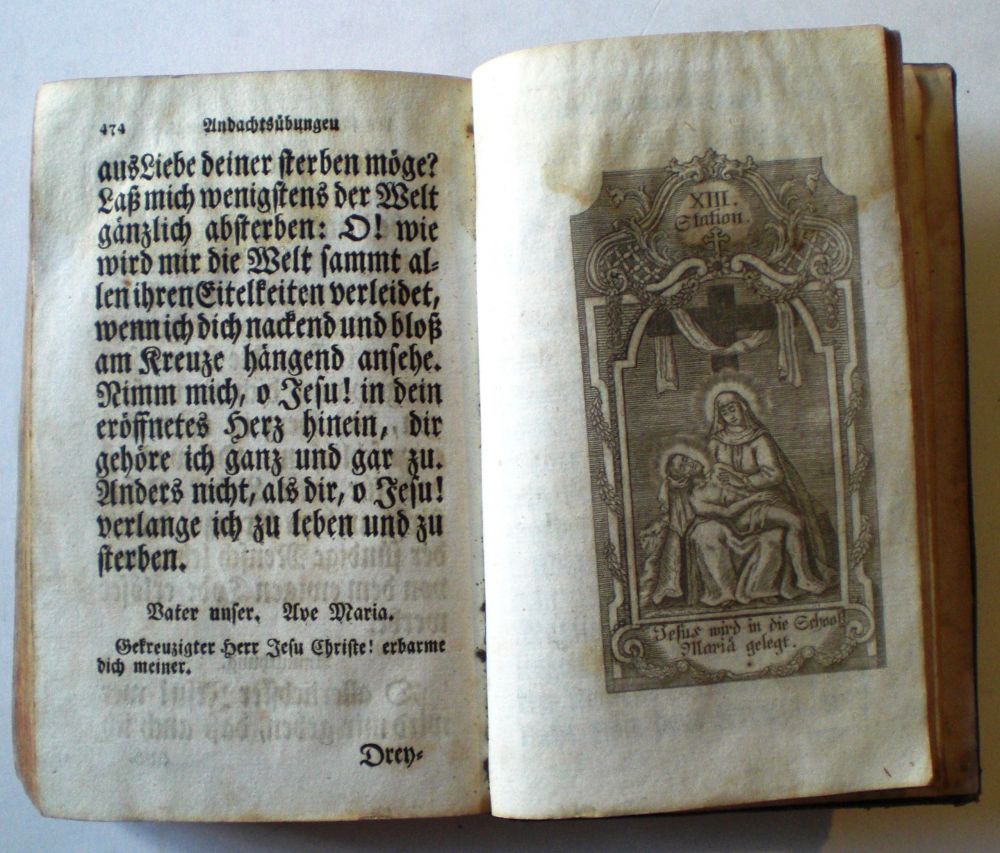 474 Andachtsübungen
aus Liebe deiner sterben möge?
Laß mich wenigstens der Welt
gänzlich absterben: O! wie
wird mir die Welt sammt al-
len ihren Eitelkeiten verleidet,
wenn ich dich nackend und bloß
am Kreuze hängend ansehe.
Nimm mich, o Jesu! in dein
eröffnetes Herz hinein, dir
gehöre ich ganz und gar zu.
Anders nicht, als dir, o Jesu!
verlange ich zu leben und zu
sterben.
Vater unser. Ave Maria.
Gekreuzigter Herr Jesu Christe! erbarme
dich meiner.
Drey-
XIII.
Station.
Jesus wird in die Schooß
Mariä gelegt.